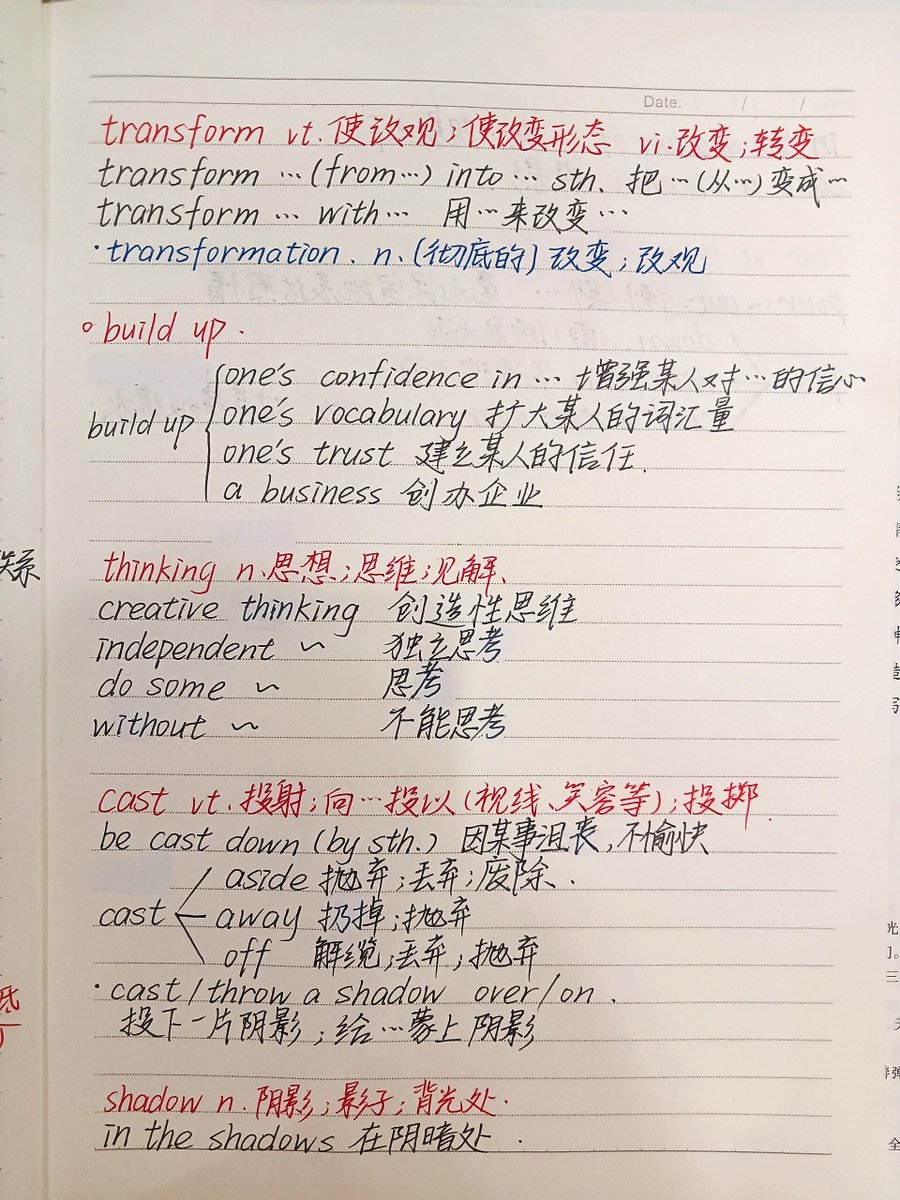 Date. / /
transform vt.使改观;使改变形态 vi.改变;转变
transform …(from…) into … sth. 把…(从…)变成…
transform … with… 用…来改变…
·transformation. n.(彻底的)改变;改观
build up.
build up
one's confidence in … 增强某人对…的信心
one's vocabulary 扩大某人的词汇量
one's trust 建立某人的信任.
a business 创办企业
thinking n.思想;思维;见解.
creative thinking 创造性思维
independent ~ 独立思考
do some ~ 思考
without ~ 不能思考
cast vt.投射;向…投以(视线、笑容等);投掷.
be cast down (by sth.) 因某事沮丧,不愉快
cast
aside 抛弃;丢弃;废除.
away 扔掉;抛弃
off 解缆;丢弃;抛弃
·cast/throw a shadow over/on.
投下一片阴影;给…蒙上阴影
shadow n.阴影;影子;背光处.
in the shadows 在阴暗处.